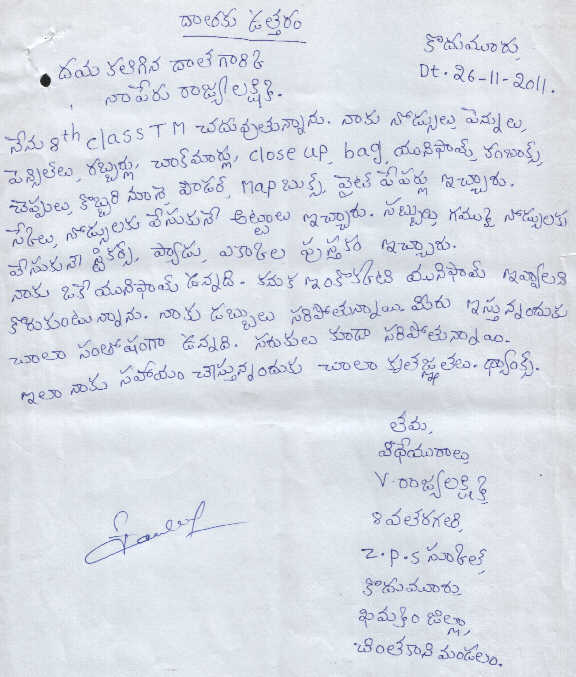 దాతకు ఉత్తరం
కొదుమూరు,
Dt. 26-11-2011.
దయ కలిగిన దాత గారికి
నా పేరు రాజ్యలక్ష్మికి.
నేను 8th class TM చదువుతున్నాను. నాకు నోట్సులు, పెన్నులు,
పెన్సిలేలు, రబ్బర్లు, చాంక్‌మార్లు, close up, bag, యునిఫామ్, కంబాక్స్,
చెప్పులు, కొబ్బరి నూనె, పౌడర్, Map బుక్స్, వైట్ పేపర్లు ఇచ్చారు.
స్కేలు, నోట్సులకు వేసుకునే అట్టలు ఇచ్చారు. సబ్బులు, గమ్ముకై నోట్సులకు
వేసుకునే స్టికర్స్, ప్యాడు, ఎకాడల పుస్తకం ఇచ్చారు.
నాకు ఒకే యునిఫామ్ ఉన్నది. కనుక ఇంకొక్కటి యునిఫామ్ ఇవ్వాలని
కోరుకుంటున్నాను. నాకు డబ్బులు సరిపోతున్నాయి. మీరు ఇస్తున్నందుకు
చాలా సంతోషంగా ఉన్నది. సరుకులు కూడా సరిపోతున్నాయి.
ఇలా నాకు సహాయం చేస్తున్నందుకు చాలా కృతజ్ఞతలు. థ్యాంక్స్.
లేమ,
విధేయురాలు
V. రాజ్యలక్ష్మికి
8వ తరగతి,
Z.P.S సుంకిల్,
కొదుమూరు
ఖమ్మం జిల్లా,
చింతకాని మండలం.